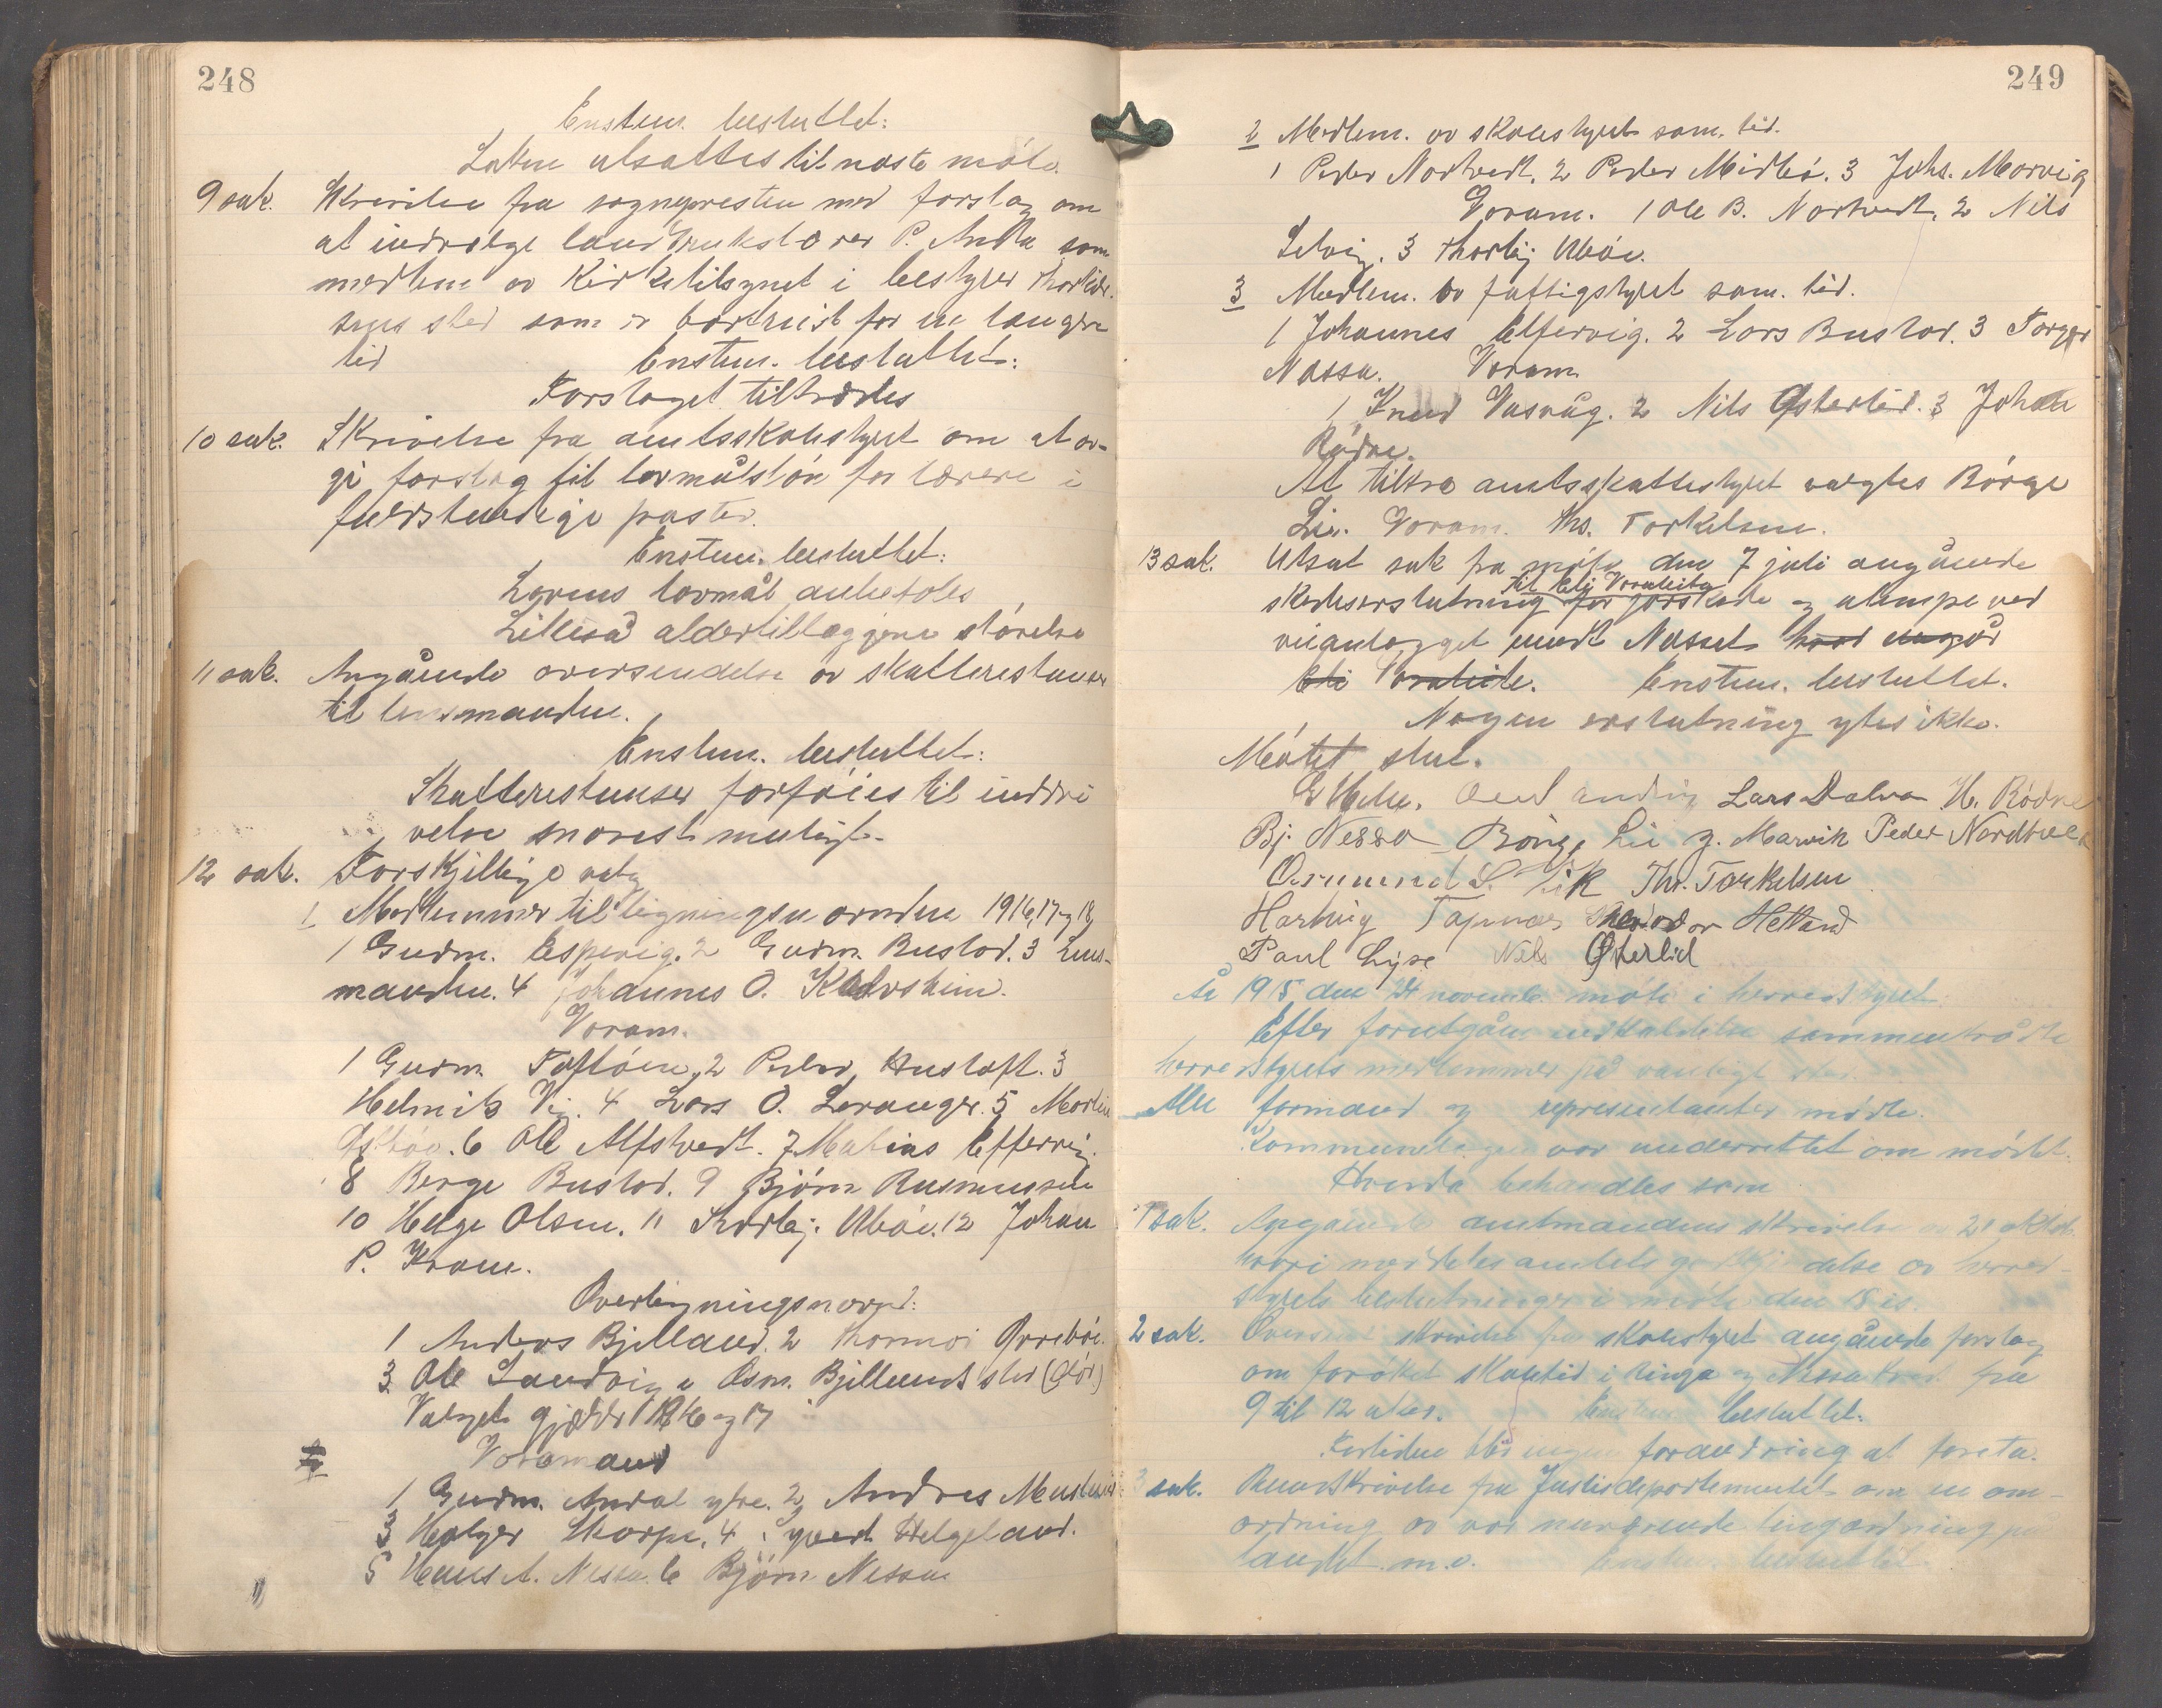 248
Enstem. besluttet:
Saken utsattes til næste møte
9 sak. Skrivelse fra sognepresten med forslag om
at indvælge landbrukslærer P. Anda som
medlem av Kirketilsynet i bestyrer Thorkild-
sens sted som er bortreist for en længere
tid Enstem. besluttet:
Forslaget tiltrædes
10 sak. Skrivelse fra amtsskolestyret om at av-
gi forslag til lovmålsløn for lærere i
fuldstændige poster.
Enstem. besluttet:
Lovens lovmål anbefales
Likeså alderstillæggene størelse
11 sak. Angående oversendelse av skatterestanser
til lensmanden.
Enstem. besluttet:
Skatterestanser forføies til inddri
velse snarest muligt.
12 sak. Forskjellige valg
1 Medlemmer til ligningsn ævnden 1916, 17 og 18
1 Gudm. Espevig. 2 Gudm. Bustad. 3 Lens-
manden. 4 Johannes O. Kalvsheim.
Varam.
1 Gudm Toftøen, 2 Peder Hustoft. 3
Helmik Vig. 4 Lars O. Leranger. 5 Martin
6 Ole Alfstvedt. 7 Matias Effervig.
8 Berge Bustad. 9 Bjørn Rasmussen
10 Helge Olsen. 11 Thorbj. Ubøe. 12 Johan
P. Krone.
Overligningsnævnd:
1 Anders Bjelland. 2 Thormod Orrebøe.
3 Ole Sandvig i Osm. Bjellands sted (død)
Valget gjælder 1916 og 17
Varamænd
1 Gudm. Andal ytre. 2
3 Holger Skorpe. 4 Helgeland.
5 Hans A. Nessa. 6 Bjørn Nessa
249
2 Medlem. av skolestyret sam. tid.
1 Peder Nortvedt. 2 Peder Midbø. 3 Johs. Marvig
Varam. 1 Ole B. Nortvedt. 2 Nils
Selvig. 3 Thorbj Ubøe.
3 Medlem. av fattigstyret sam. tid.
1 Johannes Effervig. 2 Lars Bustad. 3 Torger
Nessa. Varam.
1 Knud Vasvåg. 2 Nils Østerlid. 3 Johan
Rødne.
At tiltræ amtsskattestyret valgtes Børge
Lie. Varam. Ths. Torkelsen.
13 sak. Utsat sak fra møte den 7 juli angående
til Eli Vraalid
skadeserstatning for jorskade og ulempe ved
veianlægget mendt Nesset hvad angår
Eli Vraalide. Enstem. besluttet.
Nogen erstatning ytes ikke.
Møtet slut.
Lars Dalva H. Rødne
Bj. Nessa Börge Lie J. Marvik Peder Nordtvedt
Osmund S. Vik Ths. Torkelsen
Hartvig Tednes Theodor Hetland
Paul Lyse Nils Østerlid
År 1915 den 24 novemb. møte i herredstyret.
Efter forutgåen indkaldelse sammentrådte
herredstyrets medlemmer på vanligt sted.
Alle formand og representanter mødte.
Kommunelægen var underrettet om mødet.
Hvorda behandles som
1 sak. Angående amtmandens skrivelse av 21 oktob.
hvori meddeles amtets godkjendelse av herred-
styrets beslutninger i møte den 15 ds.
2 sak. Oversendt skrivelse fra skolestyret angående forslag
om forøket skoletid i Ringa og Nessa kreds fra
9 til 12 uker. Enstem besluttet.
Fortiden blir ingen forandring at foreta.
3 sak. Rundskrivelse fra Justisdepartementet om en om-
ordning av vor nuværende tingordning på
landet m.v. Enstem. besluttet